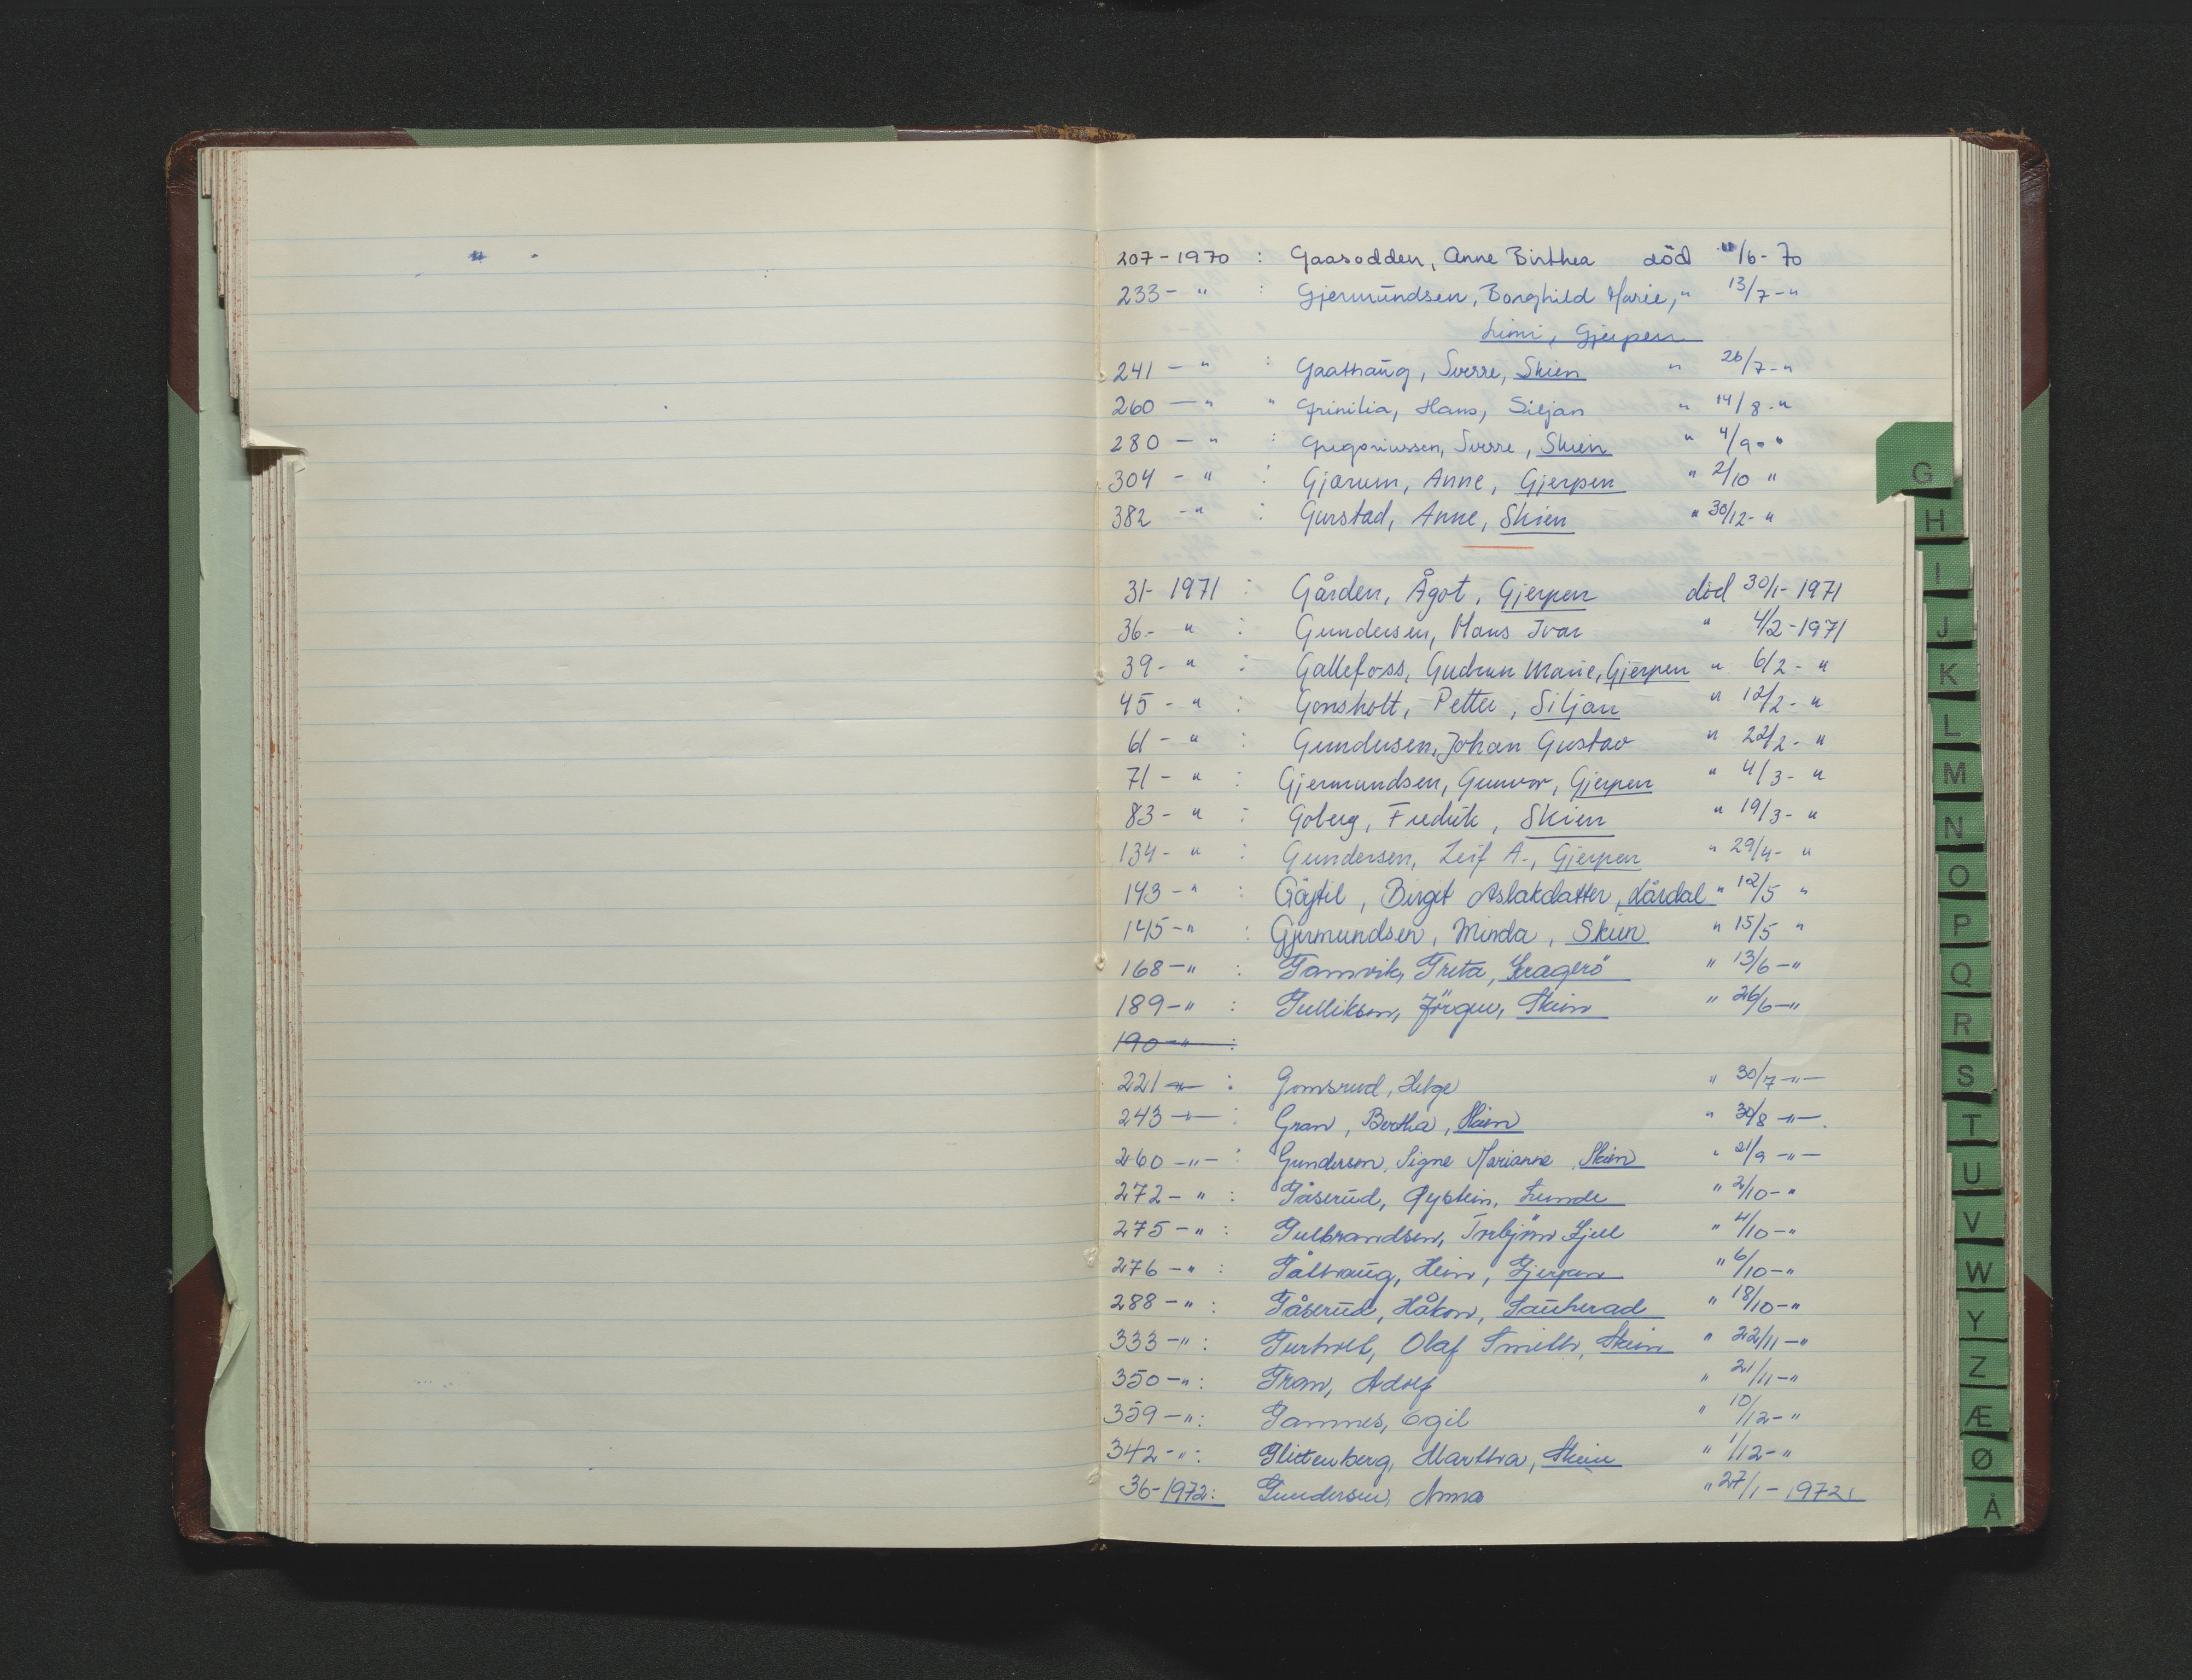 207-1970 : Gaasodden, Anne Birthea död "/6-70
233- " : Gjermundsen, Borghild Marie, " 13/7-"
Limi, Gjerpen
241 - " : Gaathaug, Sverre, Skien " 26/7-"
260 - " " Grinilia, Hans, Siljan " 14/8-"
280 - " : Gregoriussen, Sverre, Skien " 4/9-"
304 - " : Gjærum, Anne, Gjerpen " 2/10 "
382 - " : Gurstad, Anne, Skien " 30/12-"
31- 1971 : Gården, Ågot, Gjerpen död 30/1-1971
36- " : Gundersen, Hans Ivar " 4/2-1971
39- " : Gallefoss, Gudrun Marie, Gjerpen " 6/2- "
45 - " : Gonsholt, Petter, Siljan " 12/2- "
61 - " : Gundersen, Johan Gustav " 22/2- "
71 - " : Gjermundsen, Gunvor, Gjerpen " 4/3- "
83 - " : Goberg, Fredrik, Skien " 19/3- "
134- " : Gundersen, Leif A., Gjerpen " 29/4- "
143 - " : Birgit Aslakdatter, Lårdal " 12/5 "
145-" : Gjermundsen, Minda, Skien " 15/5 "
168-" : Gamvik, Greta, Kragerö " 13/6-"
189-" : Gulliksen, Jörgen, Skien " 26/6-"
190-" :
221-"- : Gomsrud, Helge " 30/7-"-
243-"- : Gran, Bertha, Skien " 30/8-"-
260-"- : Gundersen, Signe Marianne, Skien " 21/9-"-
272-" : Gåserud, Øystein, Lunde " 2/10-"
275-" : Gulbrandsen, Torbjörn Kjell " 4/10-"
276-" : Gåthaug, Hein, Gjerpen " 6/10-"
288-" : Gåserud, Håkon, Sauherad " 18/10-"
333-" : Gurholt, Olaf Smith, Skien " 22/11-"
350-" : Gran, Adolf " 21/11-"
359-" : Gamnes, Egil " 10/12-"
342-" : Glittenberg, Martha, Skien " 1/12-"
36-1972: Gundersen, Anna " 27/1-1972
G
H
I
J
K
L
M
N
O
P
Q
R
S
T
U
V
W
Y
Z
Æ
Ø
Å